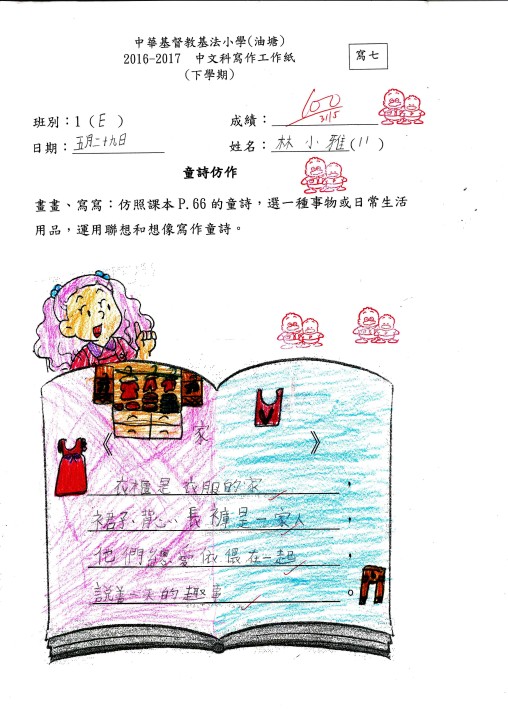 中華基督教基法小學(油塘)
2016-2017 中文科寫作工作紙
(下學期)
寫七
班別：1 ( E )
成績：100
31/5
日期：五月二十九日
姓名：林小雅(11)
童詩仿作
畫畫、寫寫：仿照課本P.66的童詩，選一種事物或日常生活
用品，運用聯想和想像寫作童詩。
《 家 》
衣櫃是衣服的家，
裙子、背心、長褲是一家人，
他們總愛依偎在一起，
說着一天的趣事。